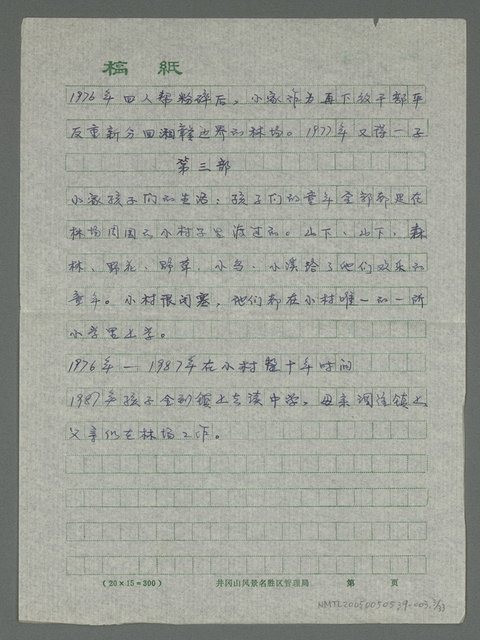 稿 紙
1976年四人帮粉碎后。小家作为再下放干部平
反重新分回湘赣边界的林场。1977年又得一子
第三部
小家孩子们的生活：孩子们的童年全部都是在
林场周围的小村子里渡过的。山下、山下、森
林、野花、野草、小鸟、小溪给了他们欢乐的
童年。小村很闭塞，他们都在小村唯一的一所
小学里上学。
1976年—1987年在小村整十年时间
1987年孩子全到镇上去读中学。母亲调往镇上
父亲仍在林场工作。
(20×15=300) 井冈山风景名胜区管理局 第 页
NMTL20050050539-003.7/33